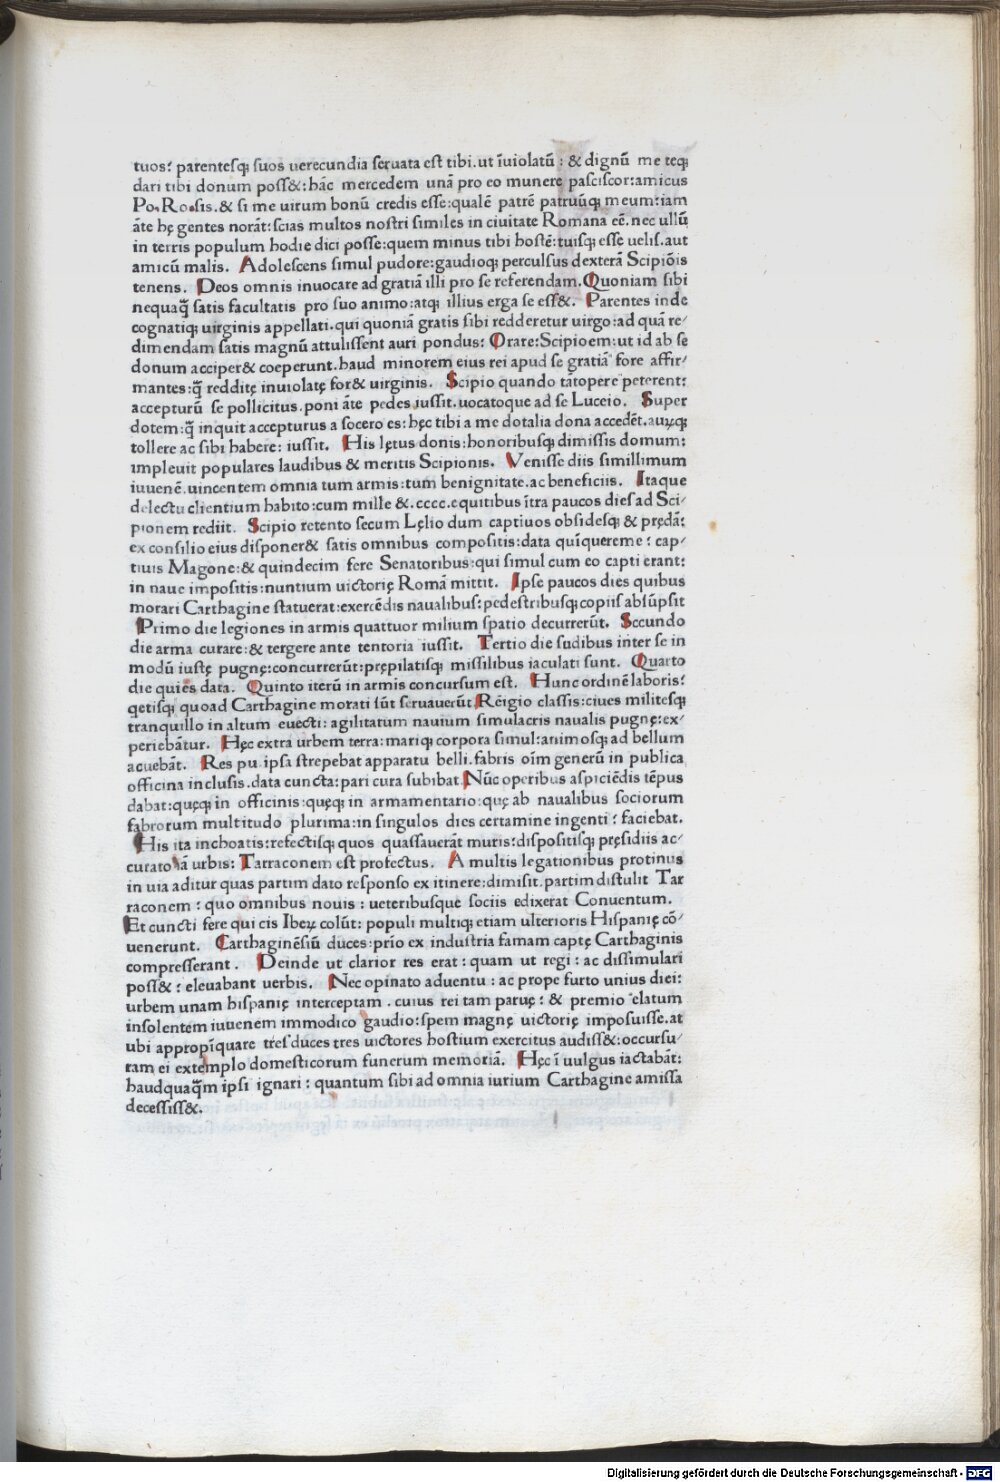 tuos: parentesq; suos uerecundia seruata est tibi.ut īuiolatū : & dignū me teq;
dari tibi donum poss&: hāc mercedem unā pro eo munere pasciscor:amicus
Po. Ro.sis.& si me uirum bonū credis esse:qualē patrē patruūq; meum:iam
āte hę gentes norāt:scias multos nostri similes in ciuitate Romana eē.nec ullū
in terris populum hodie dici posse:quem minus tibi hostē:tuisq; esse uelis.aut
amicū malis. Adolescens simul pudore:gaudioq; perculsus dexterā Scipiōis
tenens. Deos omnis inuocare ad gratiā illi pro se referendam.Quoniam sibi
nequaq̄ satis facultatis pro suo animo:atq; illius erga se ess&. Parentes inde
cognatiq; uirginis appellati.qui quoniā gratis sibi redderetur uirgo:ad quā re/
dimendam satis magnū attulissent auri pondus: Orare:Scipioem:ut id ab se
donum acciper& coeperunt.haud minorem eius rei apud se gratiā fore affir/
mantes:q̄ redditę inuiolatę for& uirginis. Scipio quando tātopere peterent:
accepturū se pollicitus.poni āte pedes iussit.uocatoque ad se Luceio. Super
dotem:q̄ inquit accepturus a socero es:hęc tibi a me dotalia dona accedēt.auꝝq;
tollere ac sibi habere: iussit. His lętus donis:honoribusq; dimissis domum:
impleuit populares laudibus & meritis Scipionis. Venisse diis simillimum
iuuenē.uincentem omnia tum armis:tum benignitate.ac beneficiis. Itaque
delectu clientium habito:cum mille &.cccc.equitibus ītra paucos dies ad Sci/
pionem rediit. Scipio retento secum Lęlio dum captiuos obsidesq; & prędā:
ex consilio eius disponer& satis omnibus compositis:data quīquereme: cap/
tiuis Magone:& quindecim fere Senatoribus:qui simul cum eo capti erant:
in naue impositis:nuntium uictorię Romā mittit. Ipse paucos dies quibus
morari Carthagine statuerat:exercēdis naualibus:pedestribusq;copiis absūpsit
Primo die legiones in armis quattuor milium spatio decurrerūt. Secundo
die arma curare:& tergere ante tentoria iussit. Tertio die sudibus inter se in
modū iustę pugnę:concurrerūt:prępilatisq; missilibus iaculati sunt. Quarto
die quies data. Quinto iterū in armis concursum est. Hunc ordinē laboris:
q̄etisq; quoad Carthagine morati sūt seruauerūt Rēigio classis:ciues militesq;
tranquillo in altum euecti: agilitatum nauium simulacris naualis pugnę:ex/
periebātur. Hęc extra urbem terra:mariq; corpora simul:animosq; ad bellum
acuebāt. Res pu ipsa strepebat apparatu belli.fabris oīm generū in publica
officina inclusis.data cuncta:pari cura subibat.Nūc operibus aspiciēdis tēpus
dabat:quęq; in officinis:quęq; in armamentario:quę ab naualibus sociorum
fabrorum multitudo plurima:in singulos dies certamine ingenti: faciebat.
His ita inchoatis:refectisq; quos quassauerāt muris:dispositisq; pręsidiis ac/
urbis: Tarraconem est profectus. A multis legationibus protinus
in uia aditur quas partim dato responso ex itinere:dimisit.partim distulit Tar
raconem: quo omnibus nouis: ueteribusque sociis edixerat Conuentum.
Et cuncti fere qui cis Ibeꝝ colūt: populi multiq; etiam ulterioris Hispanię cō/
uenerunt. Carthaginēsiū duces:prīo ex industria famam captę Carthaginis
compresserant. Deinde ut clarior res erat: quam ut regi: ac dissimulari
poss&: eleuabant uerbis. Nec opinato aduentu: ac prope furto unius diei:
urbem unam hispanię interceptam.cuius rei tam paruę: & premio elatum
insolentem iuuenem immodico gaudio:spem magnę uictorię imposuisse.at
ubi appropīquare tres duces tres uictores hostium exercitus audiss&:occursu/
ram ei extemplo domesticorum funerum memoriā. Hęc ī uulgus iactabāt:
haudquaq̄m ipsi ignari: quantum sibi ad omnia iurium Carthagine amissa
decessiss&.
Digitalisierung gefördert durch die Deutsche Forschungsgemeinschaft - DFG